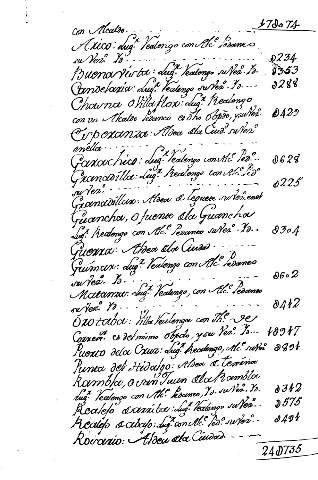 con Alcalde. 17074
Arico: Lug.r Realengo con Alc.e Pedaneo
su Vez.o Is. 234
Buenavista: Lug.r Realengo su Vez.o Is. 353
Candelaria: Lug.r Realengo su Vez.o Is. 288
Chasna o Villaflor: Lug.r Realengo
con un Alcalde Pedaneo su Vez.o 423
Esperanza: Aldea dela Ciud. su Vez.o
enella
Garachico: Lug.r Realengo con Alc.e Ped.o 628
Granadilla: Lug.r Realengo con Alc.e Ped.o
su Vez.o 225
Granadillas: Aldea de su Vez.o en el
Guancha, o fuente dela Guancha
Lug.r Realengo con Alc.e Pedaneo su Vez.o Is. 304
Guerra: Aldea dela Ciudad
Guimar: Lug.r Realengo con Alc.e Pedaneo
su Vez.o Is. 602
Matanza: Lug.r Realengo, con Alc.e Pedaneo
su Vez.o Is. 442
Orotaba: Villa Realenga con The. de
Correx.r es del mismo y su Vez.o Is. 1917
Puerto dela Cruz: Lug.r Realengo, Alc.e su Vez.o 891
Punta del Hidalgo: Aldea de Texina
Rambla, o San Juan dela Rambla
Lug.r Realengo con Alc.e Pedaneo, su Vez.o Is. 342
Realejo de arriba: Lug.r Realengo su Vez.o 575
Realejo de abajo: Lug.r con Alc.e Ped.o su Vez.o 491
Rosario: Aldea dela Ciudad
24735